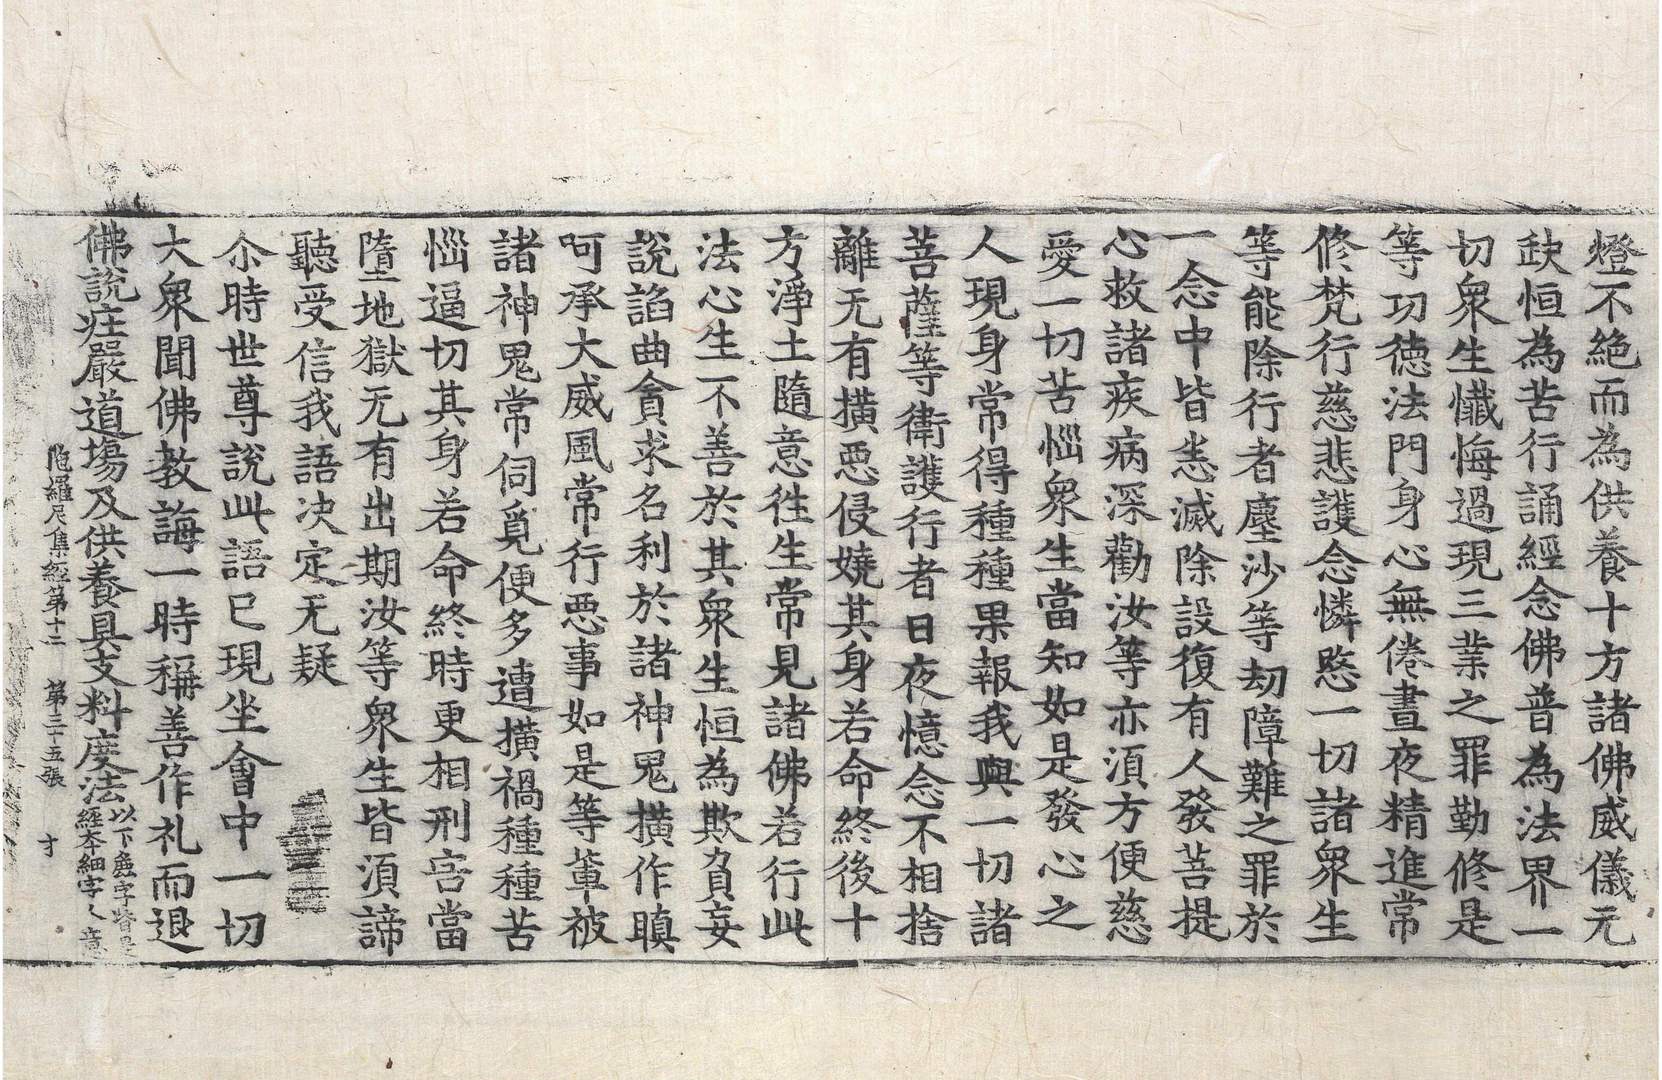 燈不絶而為供養十方諸佛威儀无
缺恒為苦行誦經念佛普為法界一
切衆生懺悔過現三業之罪勤修是
等功徳法門身心無倦晝夜精進常
修梵行慈悲護念憐愍一切諸衆生
等能除行者塵沙等劫障難之罪於
一念中皆悉滅除設復有人發菩提
心救諸疾病深勸汝等亦湏方便慈
愛一切苦惱衆生當知如是發心之
人現身常得種種果報我與一切諸
菩薩等衛護行者日夜憶念不相捨
離无有横惡侵嬈其身若命終後十
方淨土隨意徃生常見諸佛若行此
法心生不善於其衆生恒為欺負妄
說諂曲貪求名利於諸神鬼横作瞋
呵承大威風常行惡事如是等輩被
諸神鬼常伺覓便多遭横禍種種苦
惱逼切其身若命終時更相刑害當
墮地獄无有出期汝等衆生皆湏諦
聽受信我語决定无疑
尒時世尊說此語已現坐會中一切
大衆聞佛教誨一時稱善作礼而退
佛說莊嚴道場及供養具支料度法
以下麁字皆是
經本細字人意
陁羅尼集經第十二 第三十五張 才